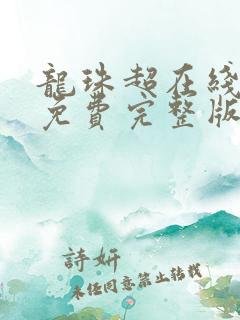 龍珠超在綫
免費完整版
詩妍
未經同意禁止轉載